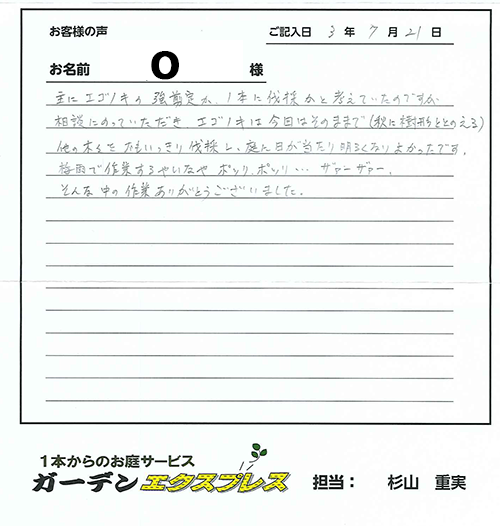 お客様の声
ご記入日 3 年 7 月 21 日
お名前 O 様
主にエゴノキの強剪定か、1本に伐採かと考えていたのですが
相談にのっていただき、エゴノキは今回はそのままで(秋に樹形をととのえる)
他の木を思いっきり伐採し、庭に日が当たり明るくなりよかったです。
梅雨で作業するやいなや ポツリ、ポツリ… ザァーザァー。
そんな中の作業ありがとうございました。
1本からのお庭サービス
ガーデンエクスプレス 担当: 杉山 重実